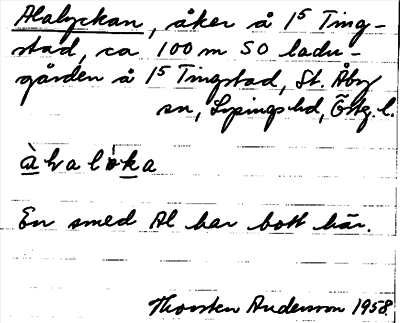 Alalyckan, åker å 1⁵ Ting-
stad, ca 100 m SO ladu-
gården å 1⁵ Tingstad, St. Åby
sn, Lysings hd, Östg. l.
En smed Al har bott här.
Thorsten Andersson 1958.